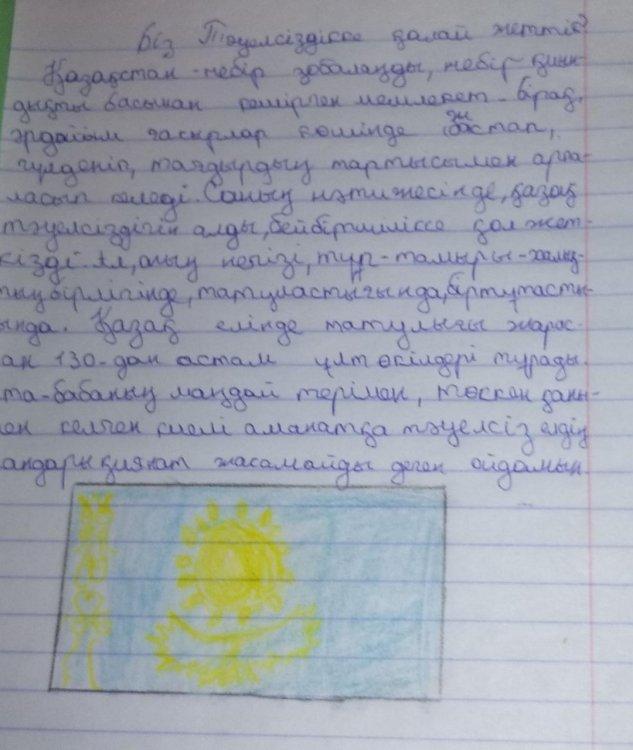 Біз Тәуелсіздікке қалай жеттік?
Қазақстан - небір зобалаңды, небір қиын-
дықты басынан кешірген мемлекет. Бірақ,
әрдайым ғасырлар көшінде жастап,
гүлденіп, тағдырдың тартысымен арпа-
ласып келеді. Соның нәтижесінде, қазақ
тәуелсіздігін алды, бейбітшілікке қол жет-
кізді. Ал, оның негізі, түп-тамыры-халық-
тың бірлігінде, татуластығында, біртұтасты-
ында. Қазақ елінде татулығы жарас-
ан 130-дан астам ұлт өкілдері тұрады.
та-бабаның маңдай терімен, төккен қаны-
ен келген киелі аманатқа тәуелсіз елдің
андары қиянат жасамайды деген ойдамын